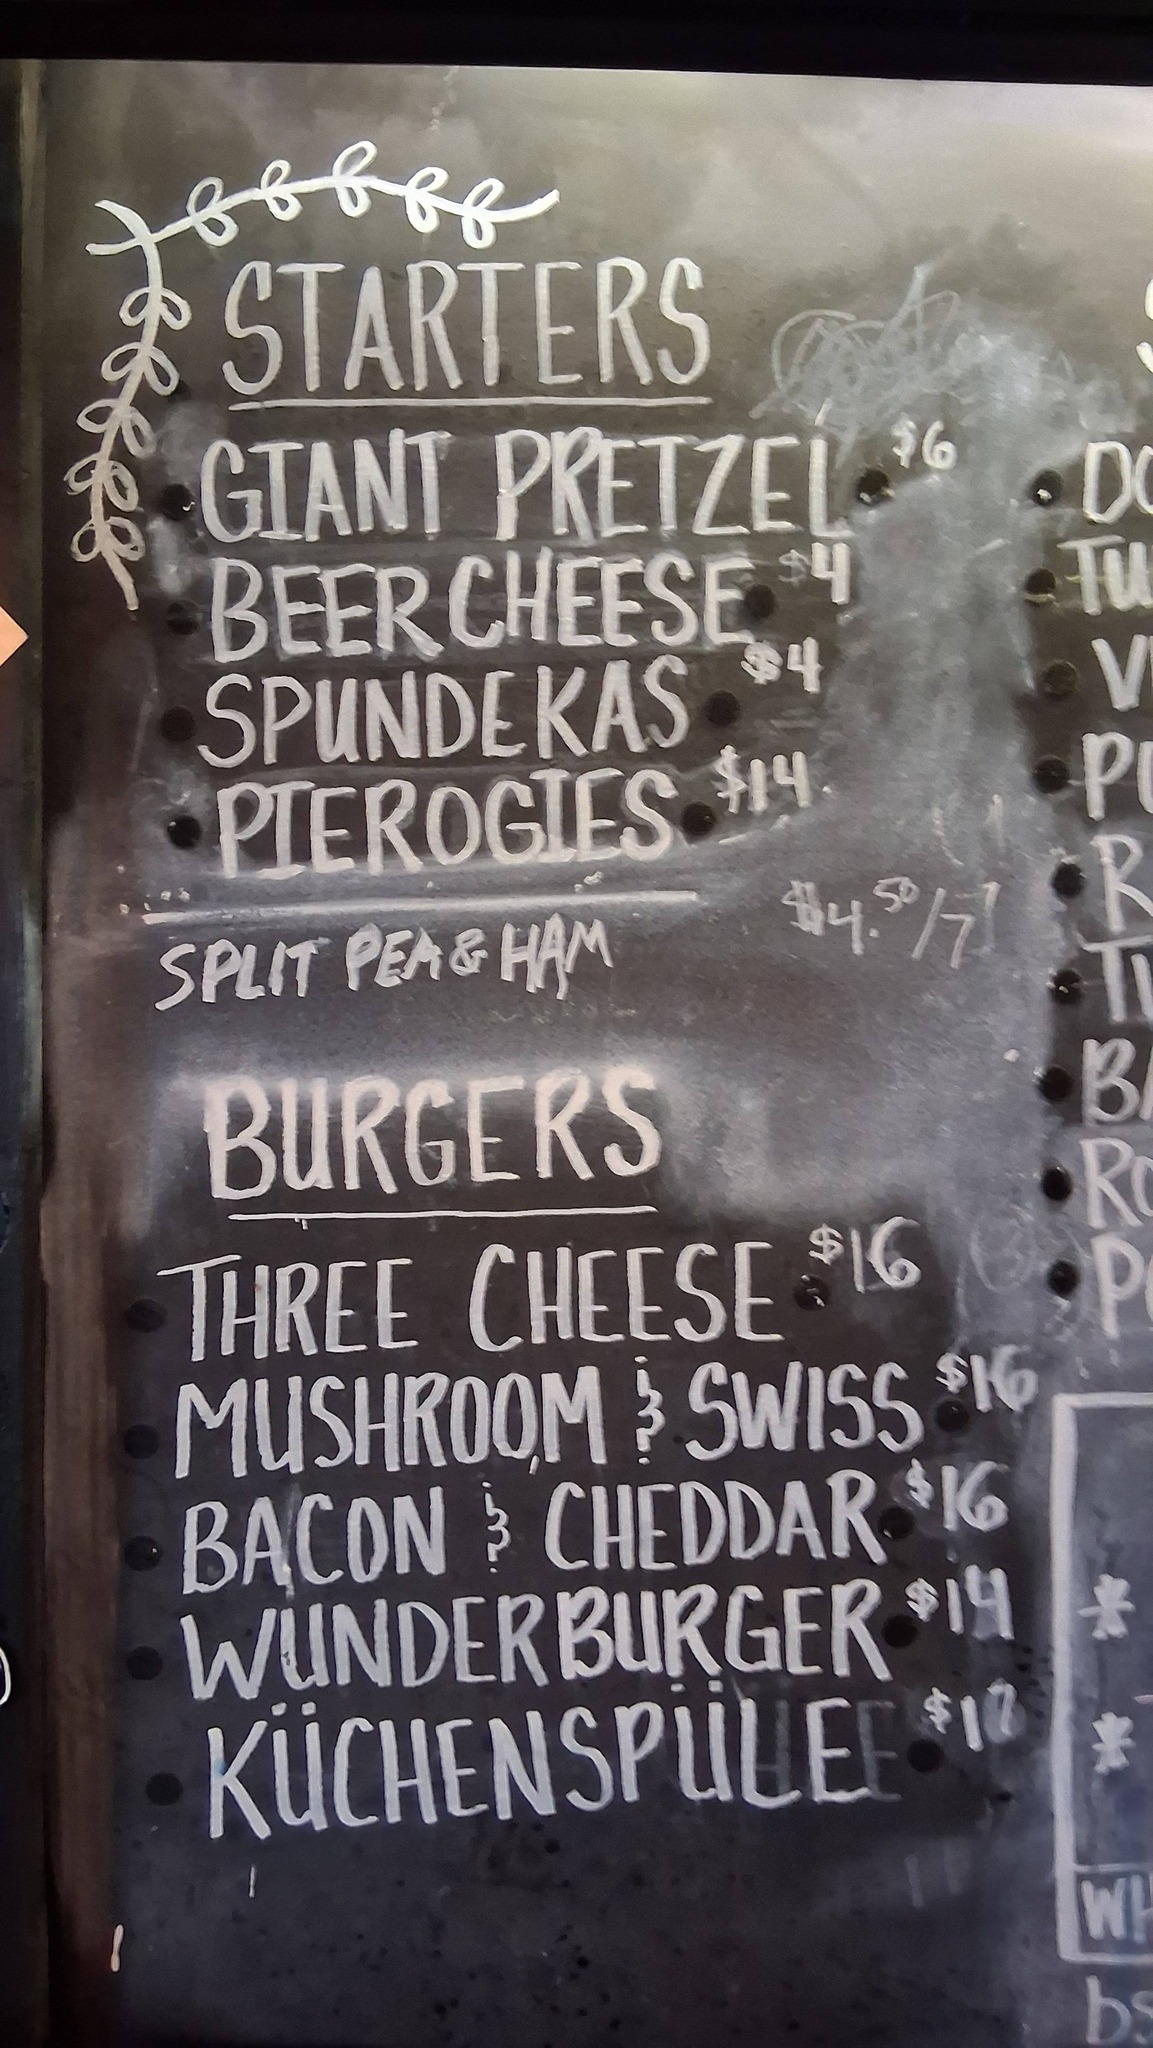 STARTERS
GIANT PRETZEL $6
BEER CHEESE $4
SPUNDEKAS $4
PIEROGIES $14
SPLIT PEA & HAM $4.50/7
BURGERS
THREE CHEESE $16
MUSHROOM & SWISS $16
BACON & CHEDDAR $16
WUNDERBURGER $14
KÜCHENSPÜLE